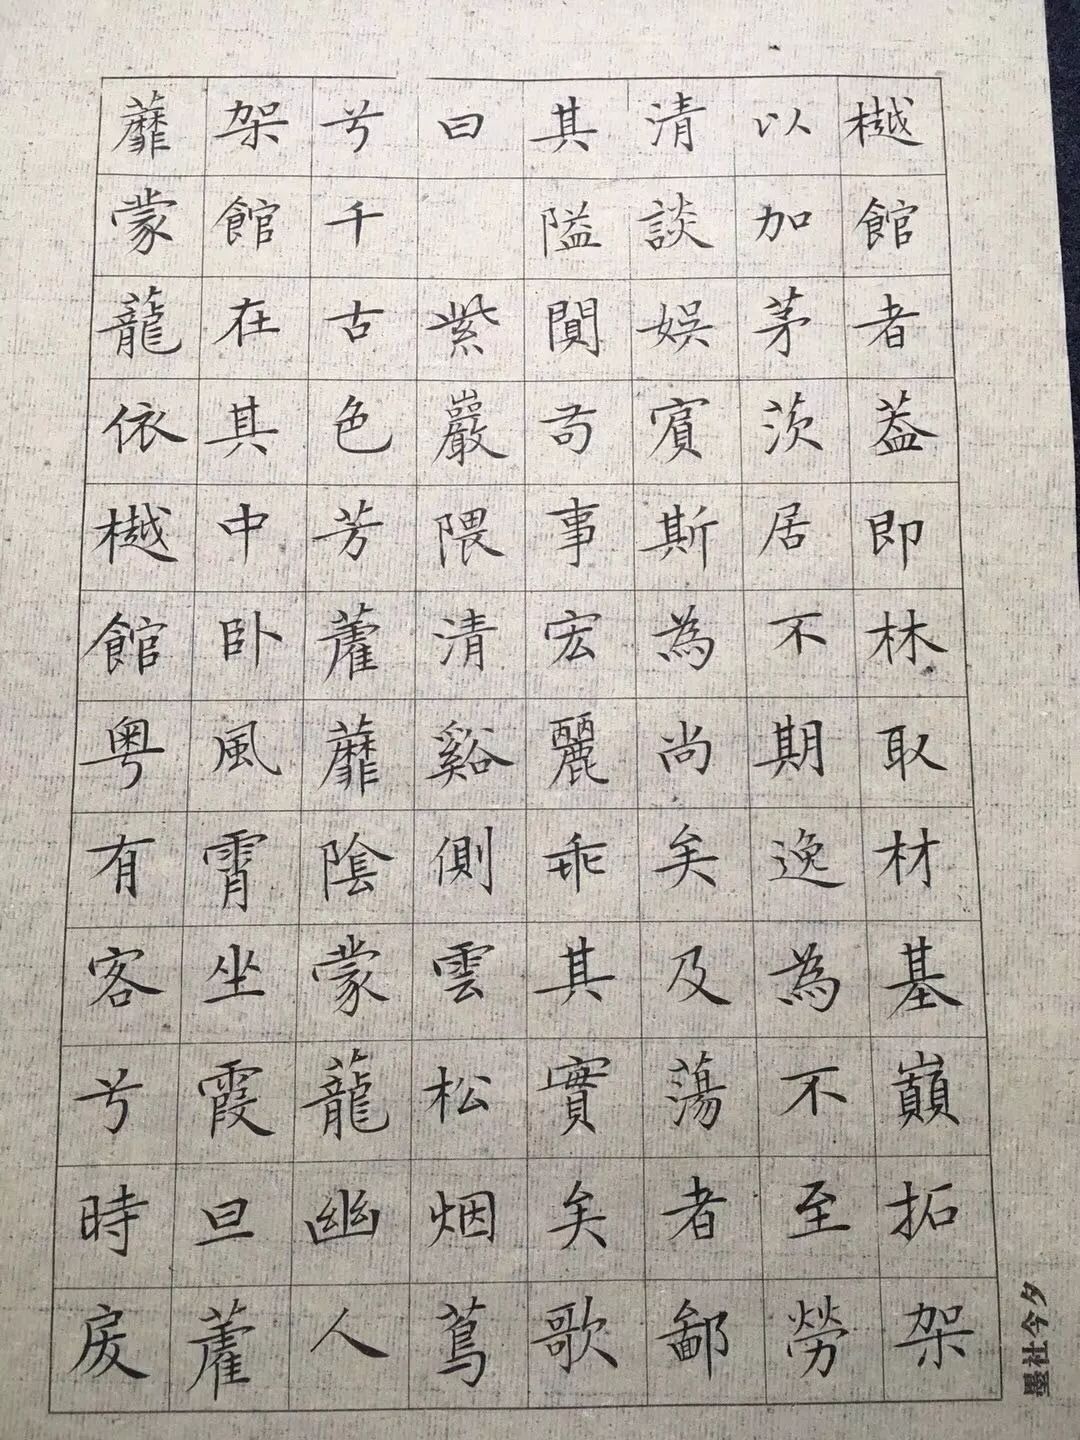 樾館者葢即林取材基巔拓架
以加茅茨居不期逸為不至勞
清談娯賔斯為尚矣及蕩者鄙
其隘閴茍事宏麗乖其實矣歌
曰紫巖隈清谿側雲松烟蔦
兮千古色芳藿蘼陰蒙蘢幽人
架館在其中卧風霄坐霞旦藿
蘼蒙蘢依樾館粤有客兮時戾
墨社今夕